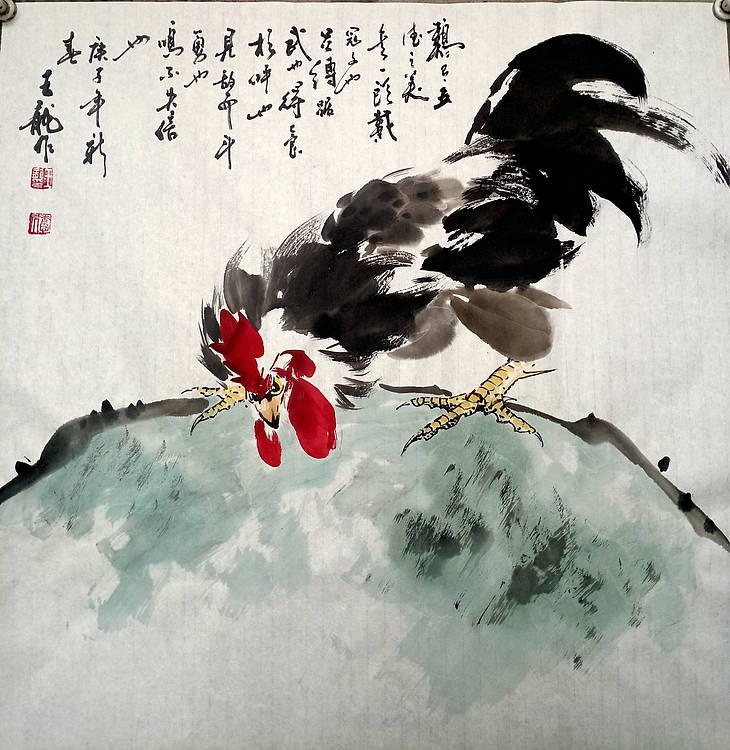 鷄有五
德之美
矣一頭戴
冠文也
足縛距
武也得食
相呼也
見敵而斗
勇也
鳴不失信
也
庚子年新
春
王龍作